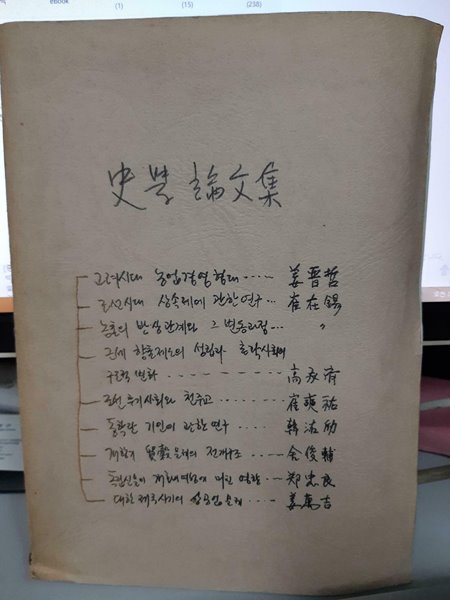 eBook (1) (15) (238)
史學論文集
고려시대 농업경영형태 ····· 姜晋哲
조선시대 상속제에 관한 연구 ··· 崔在錫
농촌의 반상관계와 그 변동과정 ··· 〃
근세 향촌제도의 성립과 촌락사회의
구조적 변화 - - - - - - - - 高承济
조선후기사회와 천주교 ···· 崔奭祐
동학란 기인에 관한 연구 ···· 韓㳓劤
개항기 문제의 전개구조 ··· 金俊輔
독립신문이 미친 영향 ··· 鄭忠良
대한제국시기의 상공업문제 ···· 姜萬吉